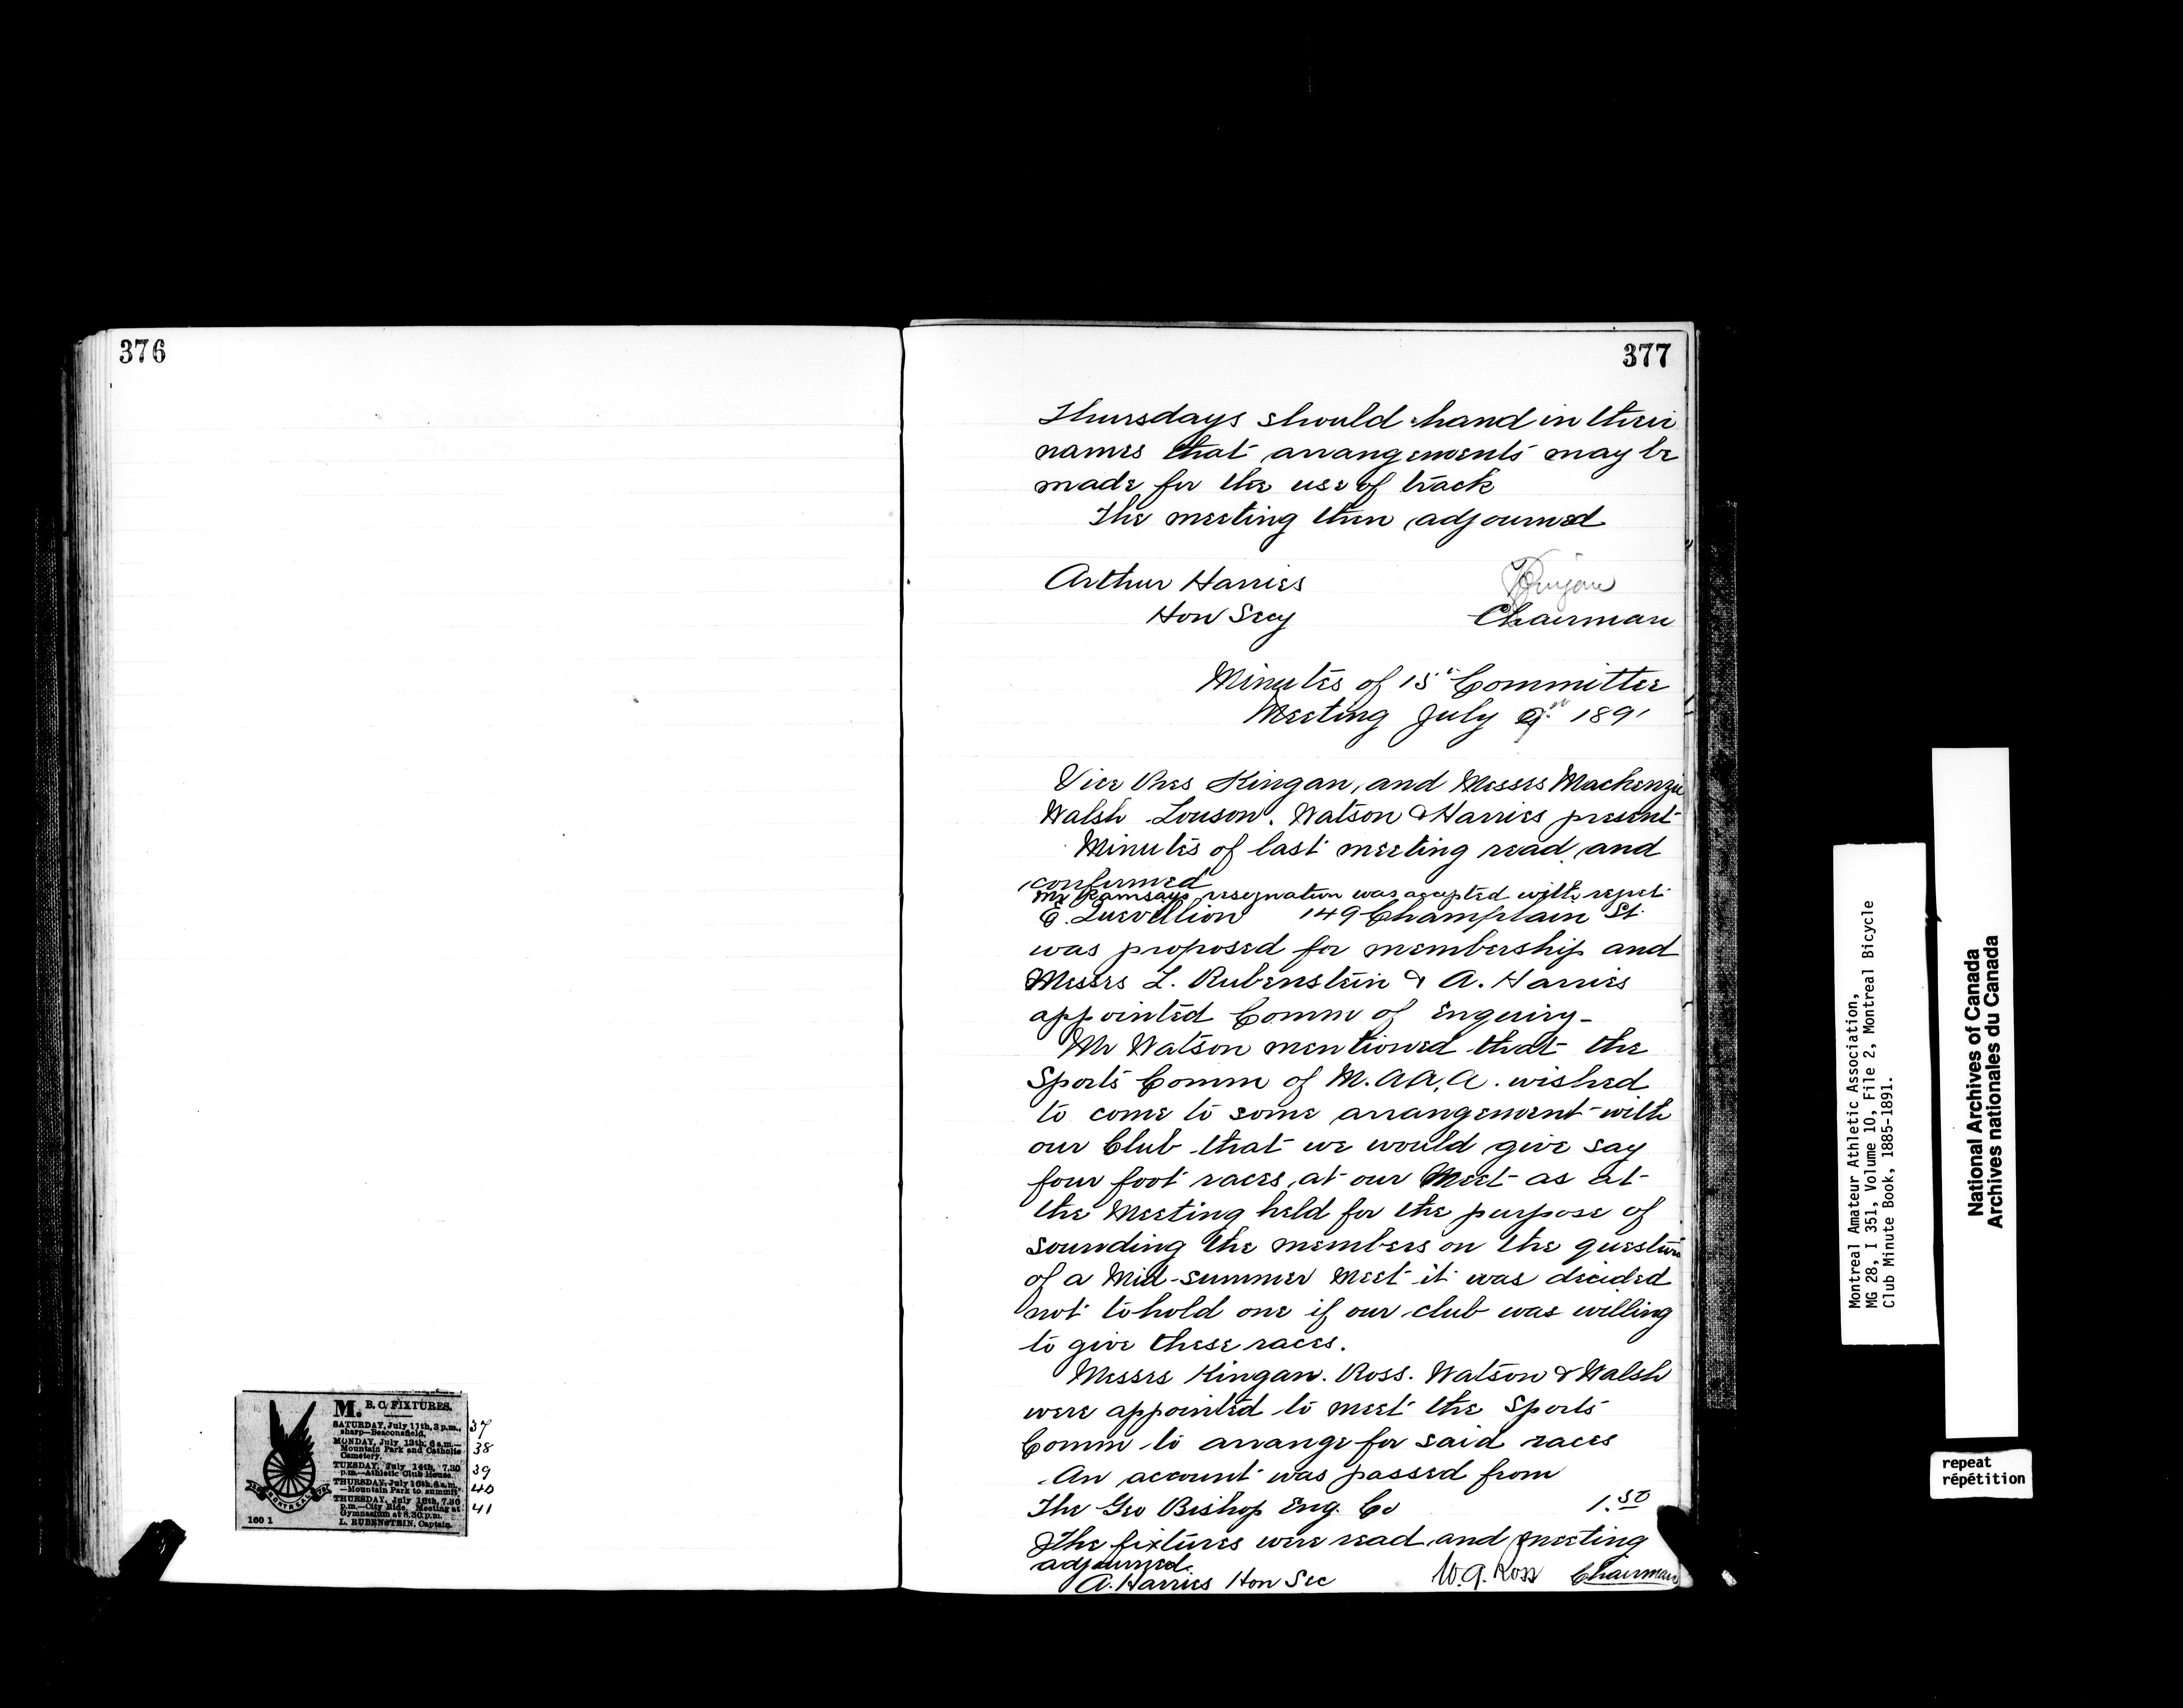 376
M. B. C. FIXTURES.
SATURDAY, July 11th, 3 p.m.,
sharp—Beaconsfield. 37
MONDAY, July 13th, 6 a.m.—
Mountain Park and Catholic 38
Cemetery.
TUESDAY, July 14th, 7.30
p.m.—Athletic Club House. 39
THURSDAY, July 16th, 6 a.m.
—Mountain Park to summit. 40
THURSDAY, July 16th, 7.30
p.m.—City Ride. Meeting at 41
Gymnasium at 8.30 p.m.
L. RUBENSTEIN, Captain.
MONTREAL
160 1
377
Thursdays should hand in their
names that arrangements may be
made for the use of track
The meeting then adjourned
Arthur Harries Kingan
Hon Secy Chairman
Minutes of 15th Committee
Meeting July 9th 1891
Vice Pres Kingan, and Messrs Mackenzie
Walsh Louson. Watson & Harries present
Minutes of last meeting read and
confirmed
Mr Ramsays resignation was accepted with regret
E. Quevillion 149 Champlain St.
was proposed for membership and
Messrs L. Rubenstein & A. Harries
appointed Comm of Enquiry-
Mr Watson mentioned that the
Sports Comm of M.A.A.A. wished
to come to some arrangement with
our Club that we would give say
four foot races at our Meet as at
the Meeting held for the purpose of
sounding the members on the question
of a Mid-summer Meet it was decided
not to hold one if our club was willing
to give these races.
Messrs Kingan. Ross. Watson & Walsh
were appointed to meet the Sports
Comm to arrange for said races
An account was passed from
The Geo Bishop Eng. Co 1.50
The fixtures were read and meeting
adjourned.
A. Harries Hon Sec W. G. Ross Chairman
Montreal Amateur Athletic Association,
MG 28, I 351, Volume 10, File 2, Montreal Bicycle
Club Minute Book, 1885-1891.
National Archives of Canada
Archives nationales du Canada
repeat
répétition